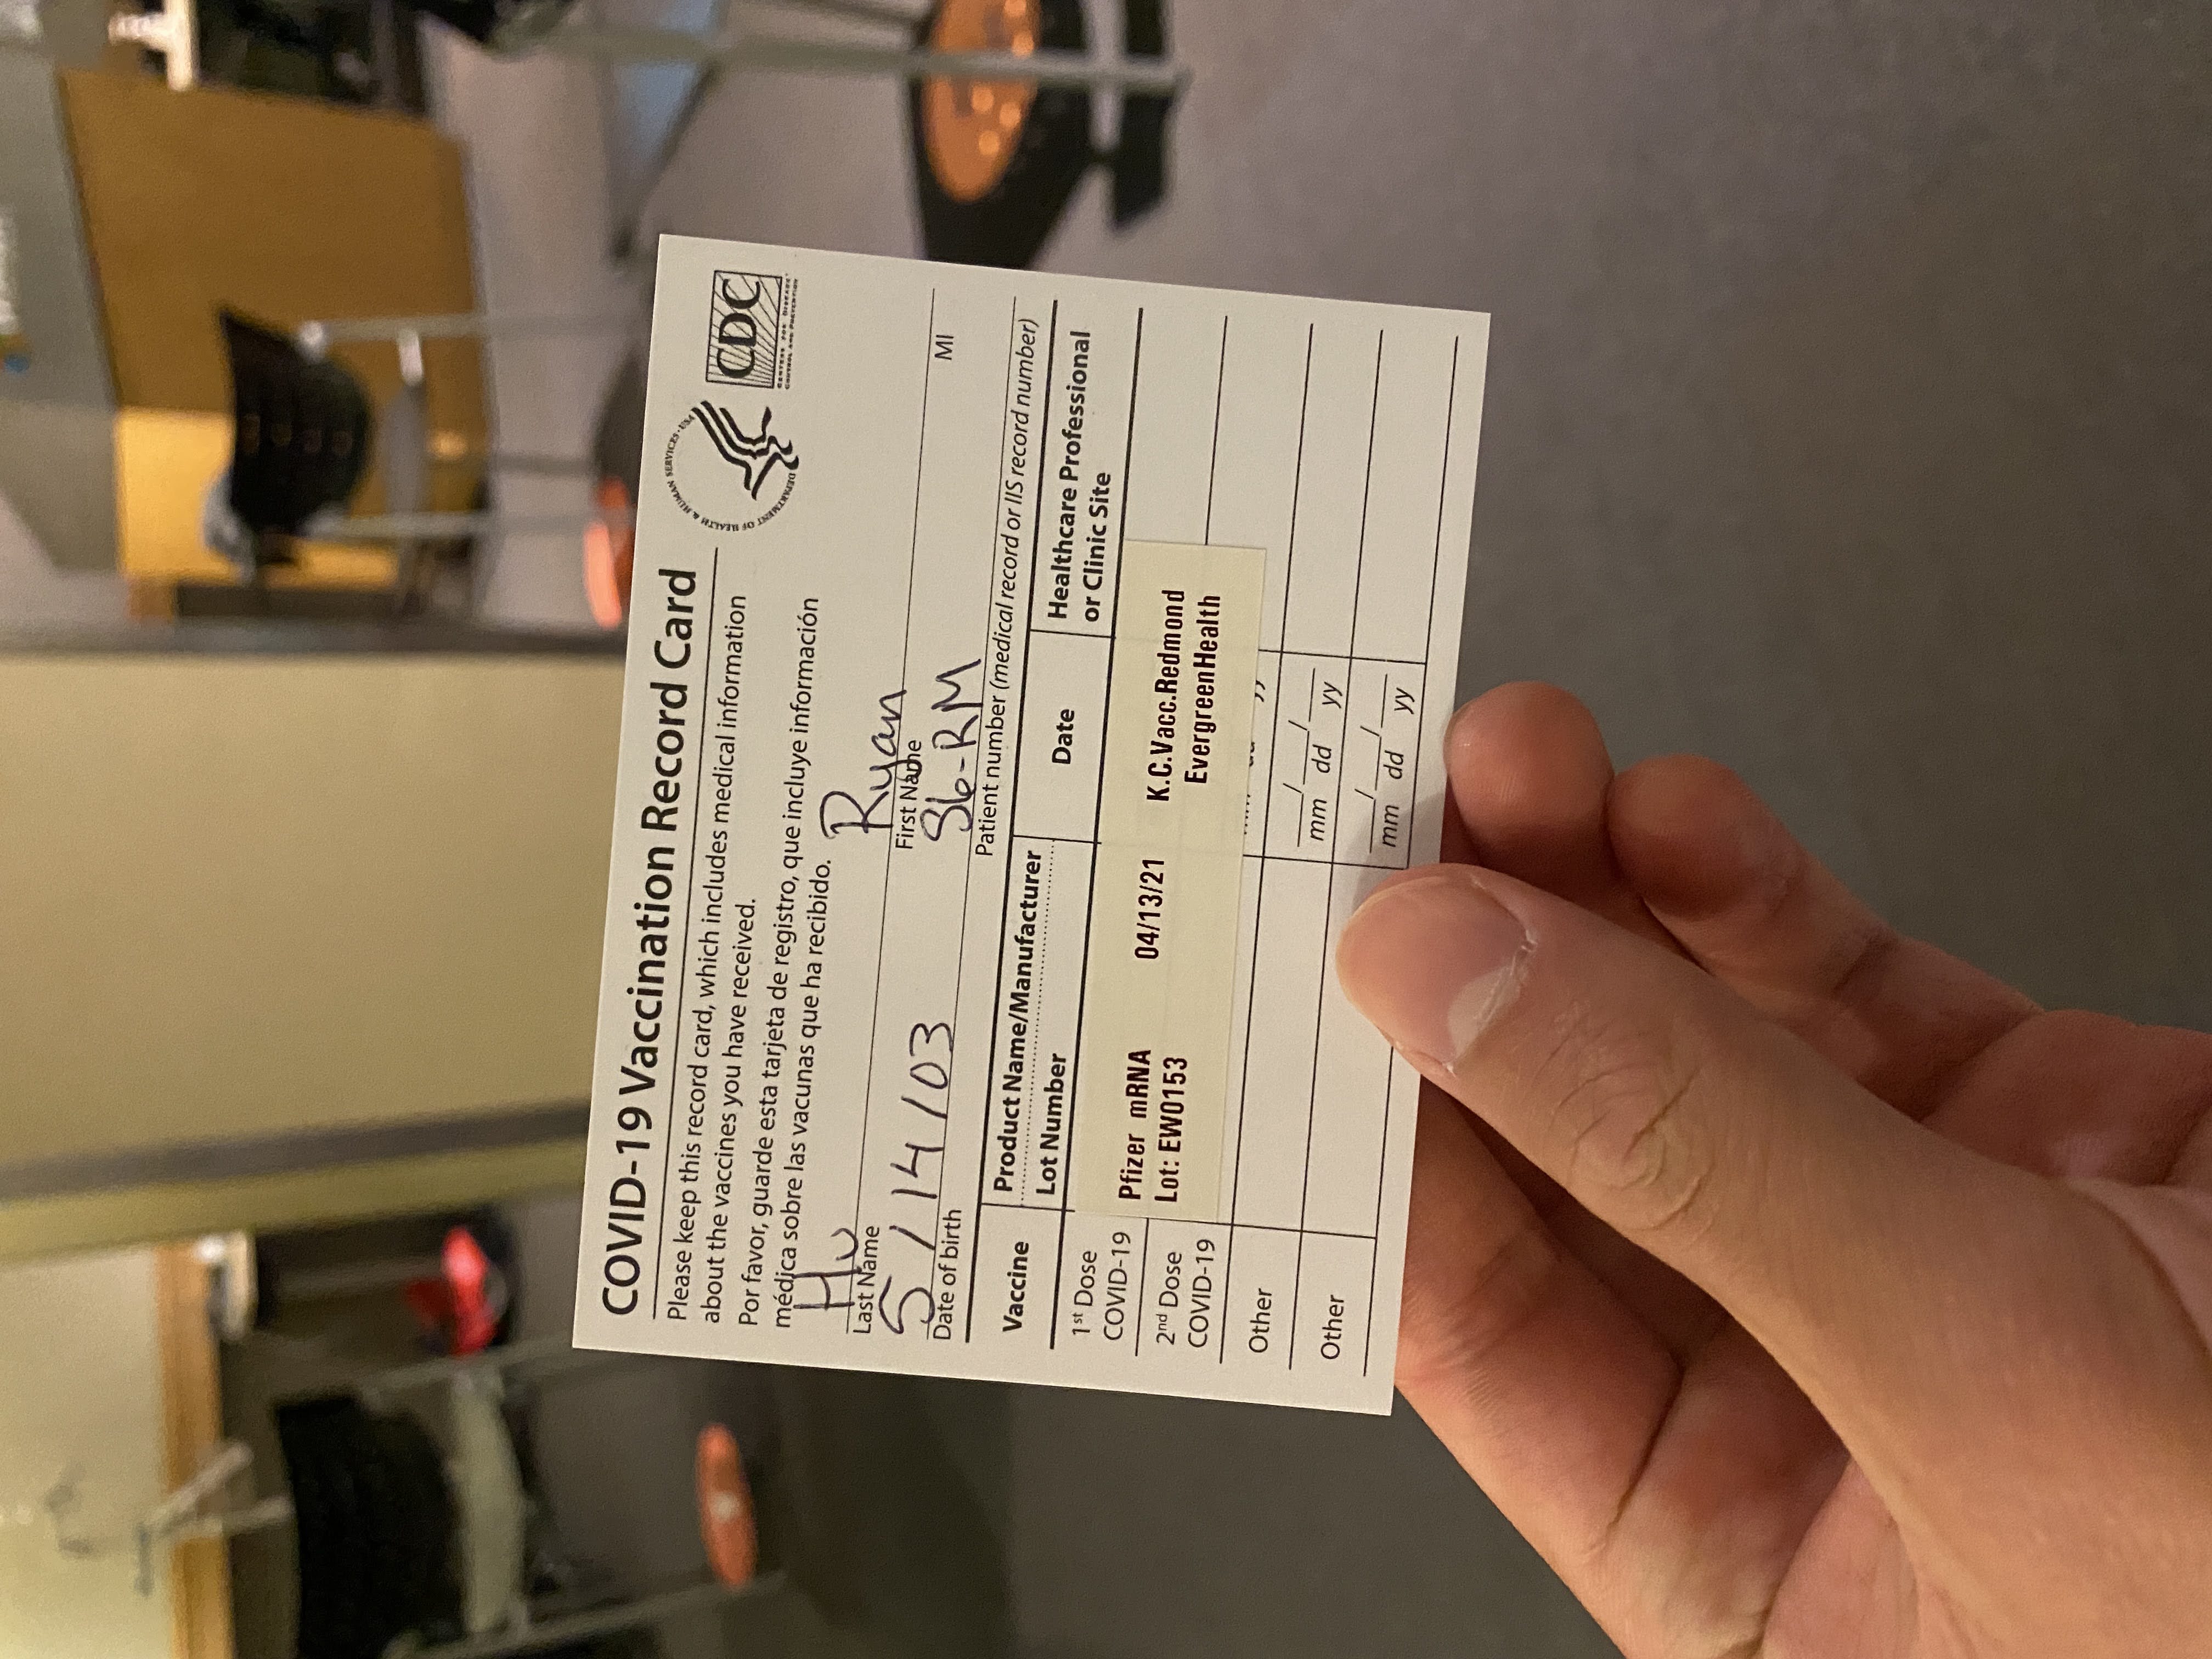 COVID-19 Vaccination Record Card
Please keep this record card, which includes medical information
about the vaccines you have received.
Por favor, guarde esta tarjeta de registro, que incluye información
médica sobre las vacunas que ha recibido.
DEPARTMENT OF HEALTH & HUMAN SERVICES · USA
CDC
CENTERS FOR DISEASE
CONTROL AND PREVENTION
Hu Ryan
Last Name First Name MI
5/14/03 S6-RM
Date of birth Patient number (medical record or IIS record number)
Vaccine Product Name/Manufacturer Date Healthcare Professional
Lot Number or Clinic Site
1st Dose
COVID-19
Pfizer mRNA 04/13/21 K.C.Vacc.Redmond
Lot: EW0153 EvergreenHealth
2nd Dose
COVID-19
mm dd yy
Other
__/__/__
mm dd yy
Other
__/__/__
mm dd yy